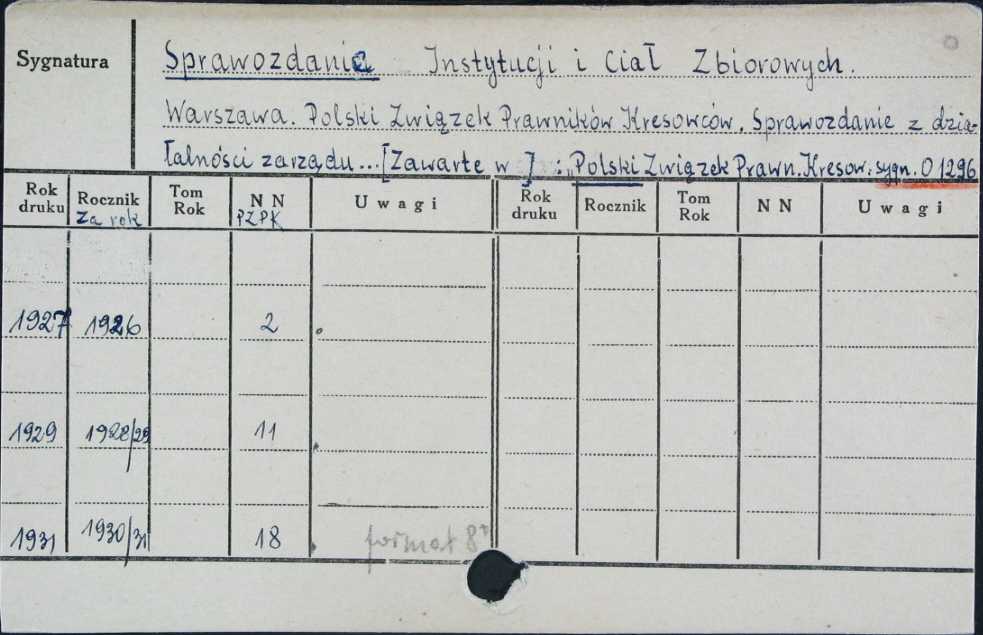 Sygnatura
Sprawozdania Instytucji i Ciał Zbiorowych.
Warszawa. Polski Związek Prawników Kresowców. Sprawozdanie z dzia=
łalności zarządu...[Zawarte w ] : „Polski Związek Prawn. Kresow. sygn. O 1296
Rok druku Rocznik Za rok Tom Rok NN PZPK Uwagi Rok druku Rocznik Tom Rok NN Uwagi
1927 1926 2
1929 1928/29 11
1931 1930/31 18 format 8°